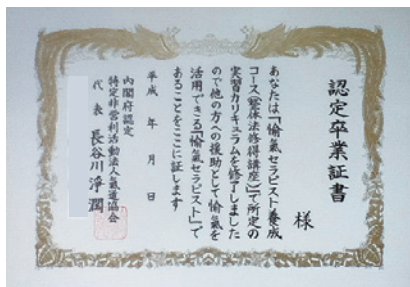 認定卒業証書
様
あなたは「愉氣セラピスト養成
コース(整体法修得講座)」で所定の
実習カリキュラムを修了しました
ので他の方への援助として愉氣を
活用できる「愉氣セラピスト」で
あることをここに証します
平成 年 月 日
内閣府認定
特定非営利活動法人氣道協会
代表 長谷川淨潤